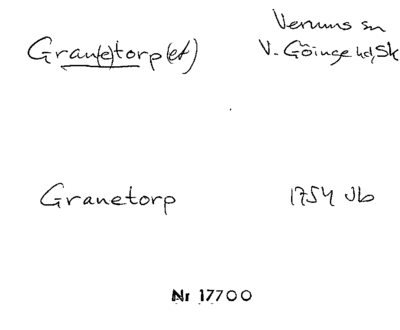 Verums sn
Gran(e)torp(et) V. Göinge hd, Sk
Granetorp 1754 Jb
Nr 17700